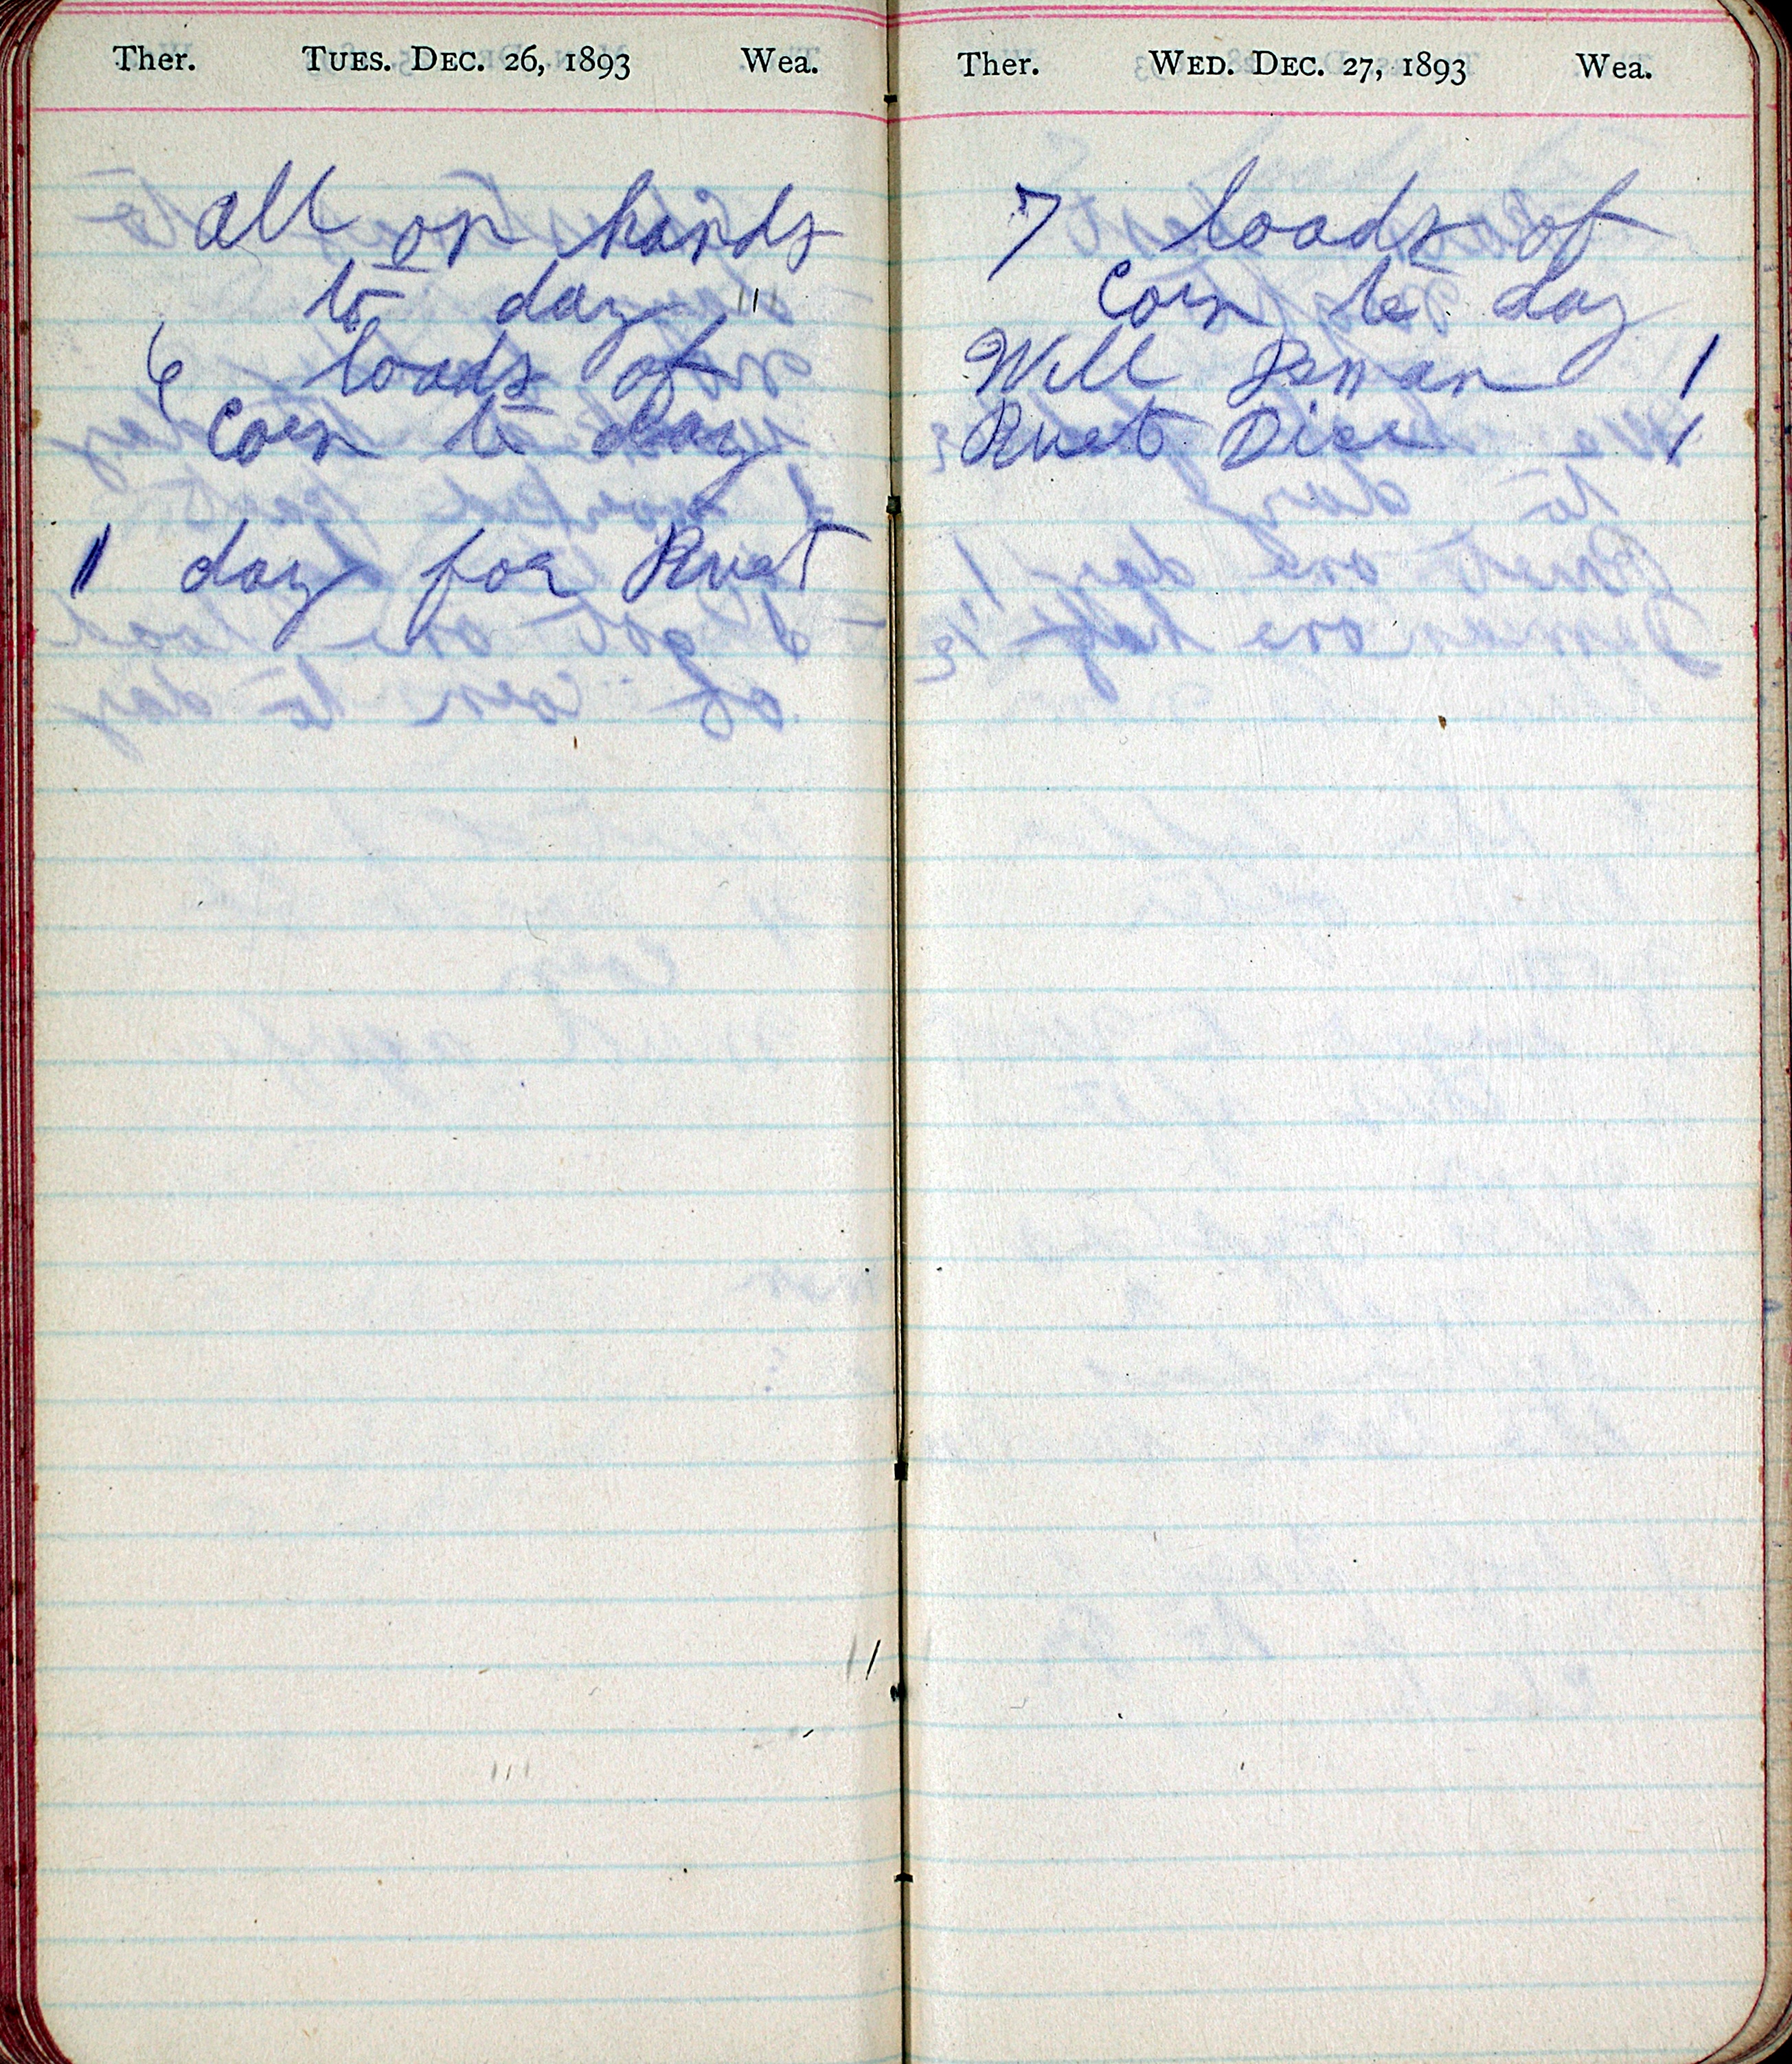 Ther. TUES. DEC. 26, 1893 Wea.
all on hands
to day
6 loads of
Corn to day
1 day for Ruet
Ther. WED. DEC. 27, 1893 Wea.
7 loads of
Corn to day
Will 1
Ruet Dice 1